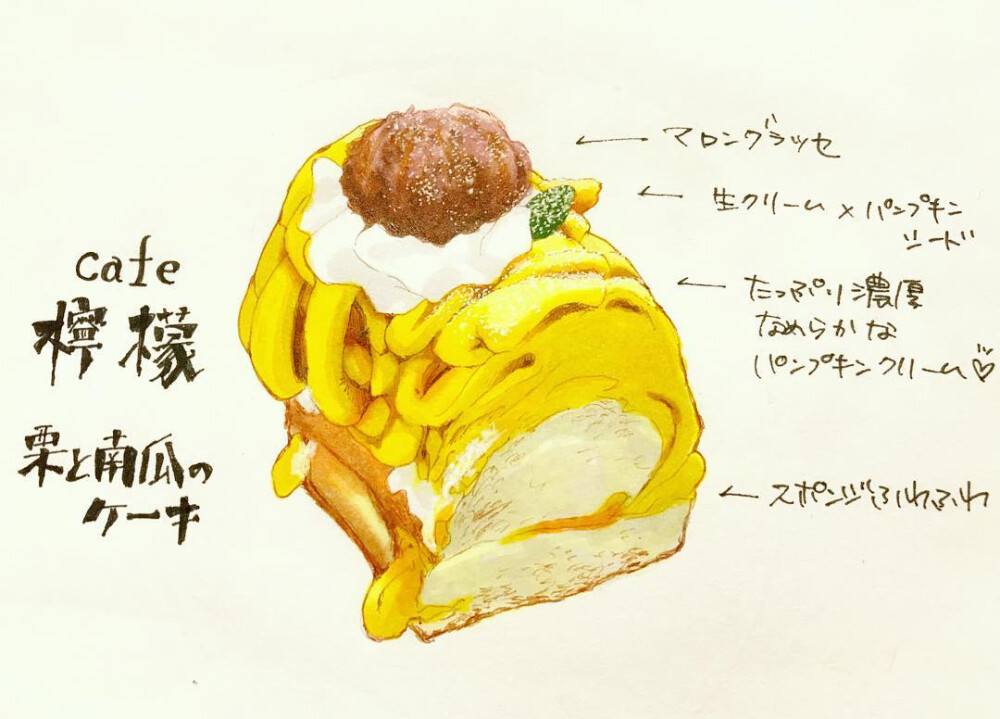 cafe
檸檬
栗と南瓜の
ケーキ
マロングラッセ
生クリーム×パンプキン
シード
たっぷり濃厚
なめらかな
パンプキンクリーム♡
スポンジふわふわ